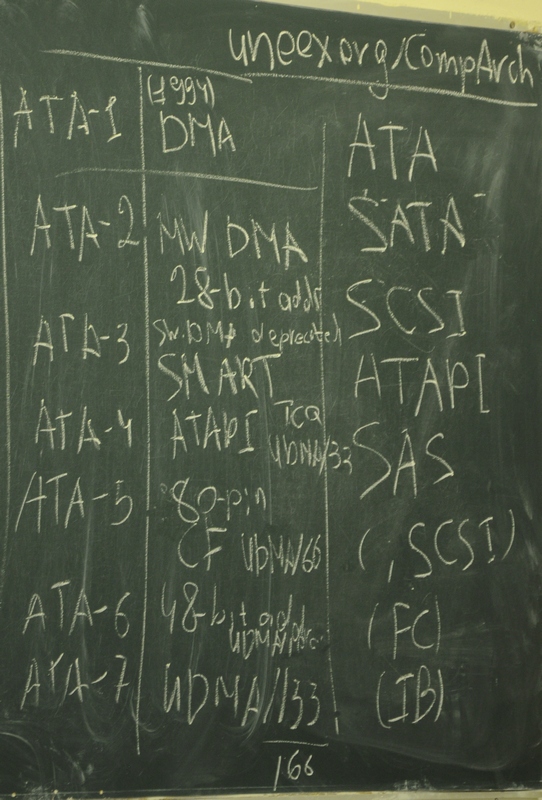 uneex.org/CompArch
ATA-1 (1994) DMA
ATA-2 MW DMA
28-bit addr
ATA-3 sw.DMA deprecated
SMART
ATA-4 ATAPI TCQ
UDMA/33
ATA-5 80-pin
CF UDMA/66
ATA-6 48-bit addr
ATA-7 UDMA/133
166
ATA
SATA
SCSI
ATAPI
SAS
(iSCSI)
(FC)
(IB)